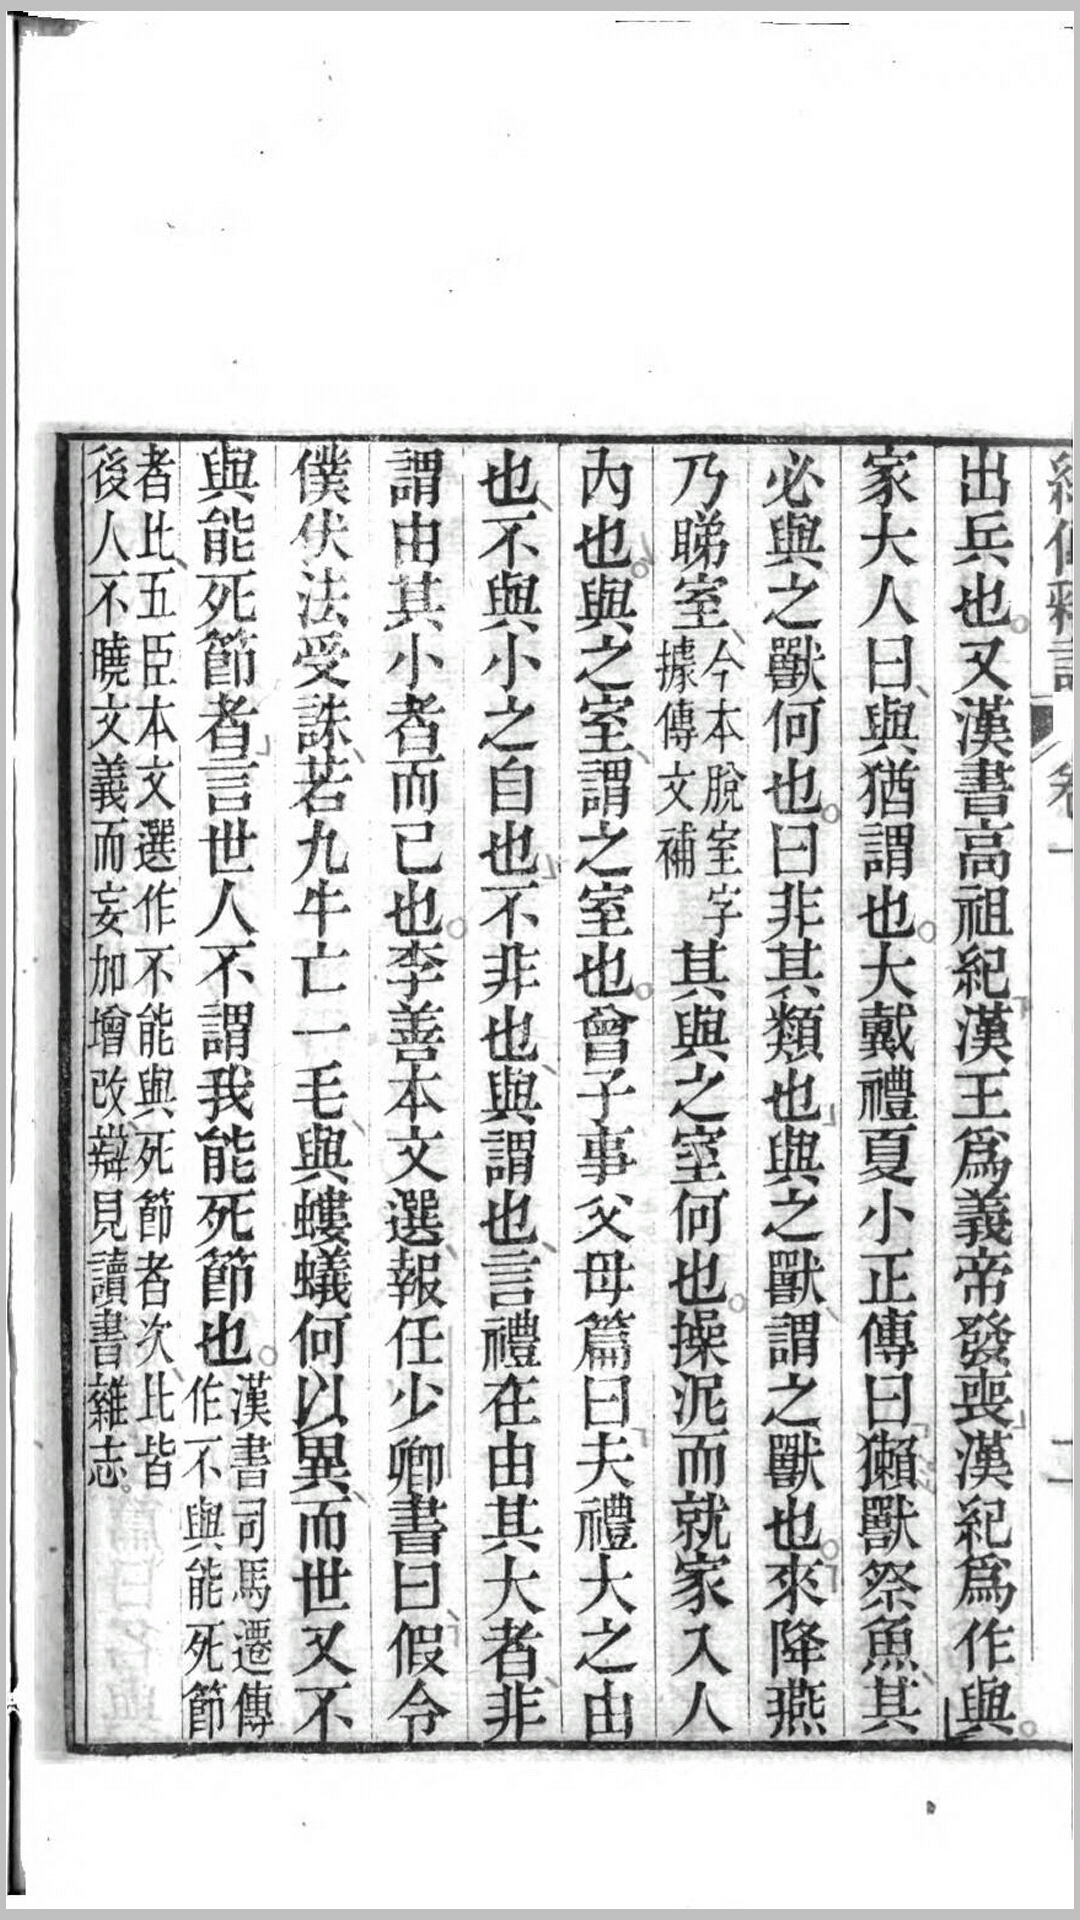 經傳釋詞 卷一 二
出兵也又漢書高祖紀漢王爲義帝發喪漢紀爲作與
家大人曰與猶謂也大戴禮夏小正傳曰獺獸祭魚其
必與之獸何也曰非其類也與之獸謂之獸也來降燕
乃睇室今本脫室字據傳文補其與之室何也操泥而就家入人
內也與之室謂之室也曾子事父母篇曰夫禮大之由
也不與小之自也不非也與謂也言禮在由其大者非
謂由其小者而已也李善本文選報任少卿書曰假令
僕伏法受誅若九牛亡一毛與螻蟻何以異而世又不
與能死節者言世人不謂我能死節也漢書司馬遷傳作不與能死節
者比五臣本文選作不能與死節者次比皆
後人不曉文義而妄加增改辯見讀書雜志